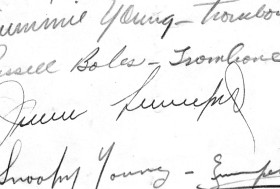 Trummie Young – Trombone
Russell Boles – Trombone
Jimmie Lunceford
Snooky Young –